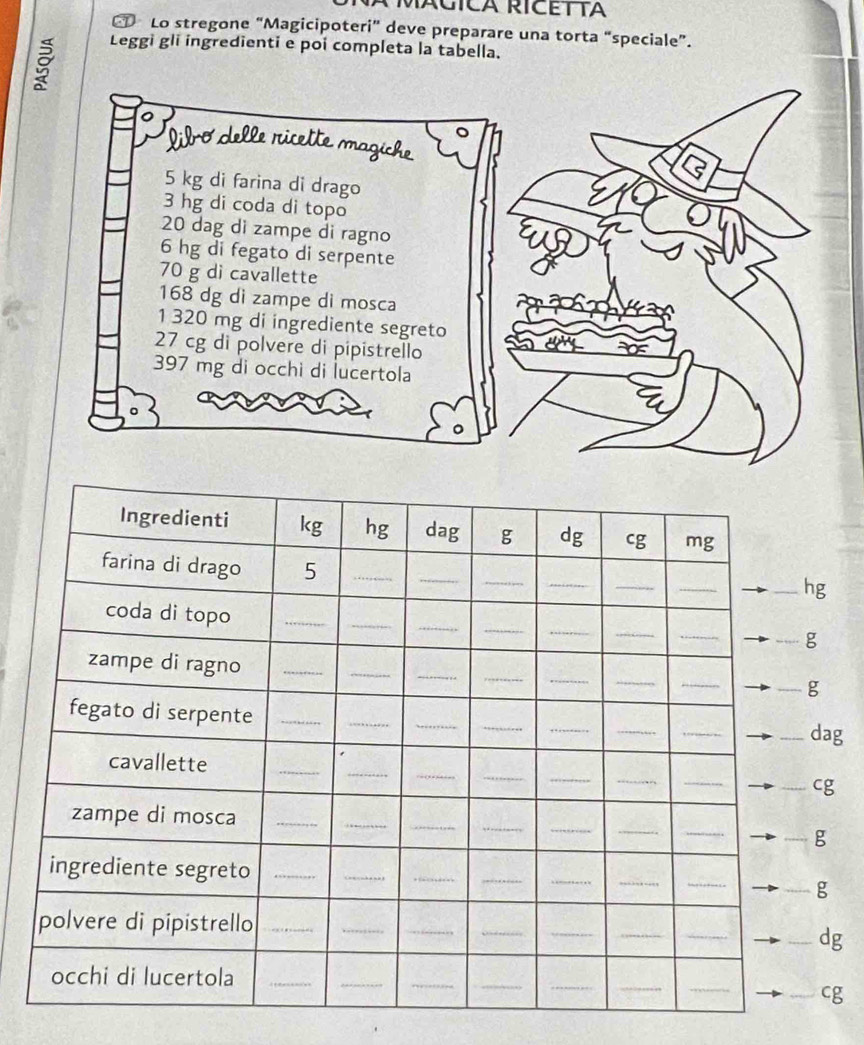 MAGICA RICETTA
PASQUA
Lo stregone “Magicipoteri” deve preparare una torta “speciale”.
Leggi gli ingredienti e poi completa la tabella.
libro delle ricette magiche
5 kg di farina di drago
3 hg di coda di topo
20 dag di zampe di ragno
6 hg di fegato di serpente
70 g di cavallette
168 dg di zampe di mosca
1 320 mg di ingrediente segreto
27 cg di polvere di pipistrello
397 mg di occhi di lucertola
Ingredienti kg hg dag g dg cg mg
farina di drago 5 ___ ___ ___ ___ ___ ___ → ___ hg
coda di topo ___ ___ ___ ___ ___ ___ ___ → ___ g
zampe di ragno ___ ___ ___ ___ ___ ___ ___ → ___ g
fegato di serpente ___ ___ ___ ___ ___ ___ ___ → ___ dag
cavallette ___ ___ ___ ___ ___ ___ ___ → ___ cg
zampe di mosca ___ ___ ___ ___ ___ ___ ___ → ___ g
ingrediente segreto ___ ___ ___ ___ ___ ___ ___ → ___ g
polvere di pipistrello ___ ___ ___ ___ ___ ___ ___ → ___ dg
occhi di lucertola ___ ___ ___ ___ ___ ___ ___ → ___ cg